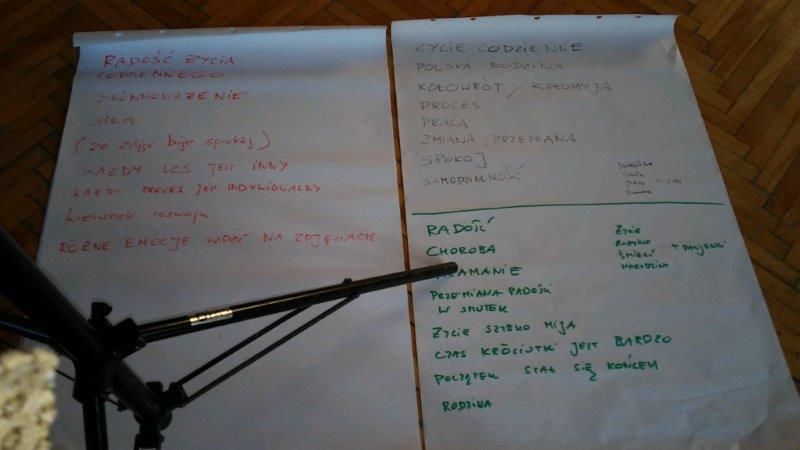 RADOŚĆ ŻYCIA
CODZIENNEGO
SIŁA
(ze zdjęć bije spokój)
KAŻDY LOS JEST INNY
KAŻDY PROCES JEST INDYWIDUALNY
kierunek rozwoju
RÓŻNE EMOCJE WIDAĆ NA ZDJĘCIACH
ŻYCIE CODZIENNE
POLSKA RODZINA
KOŁOWRÓT / KOŁOMYJA
PROCES
PRACA
ZMIANA, PRZEMIANA
SPOKÓJ
SAMODZIELNOŚĆ
RADOŚĆ
CHOROBA
PRZEMIANA RADOŚCI
W SMUTEK
ŻYCIE SZYBKO MIJA
CZAS KRÓCIUTKI JEST BARDZO
POCZĄTEK STAŁ SIĘ KOŃCEM
RODZINA
ŻYCIE
ŚMIERĆ
NARODZINY